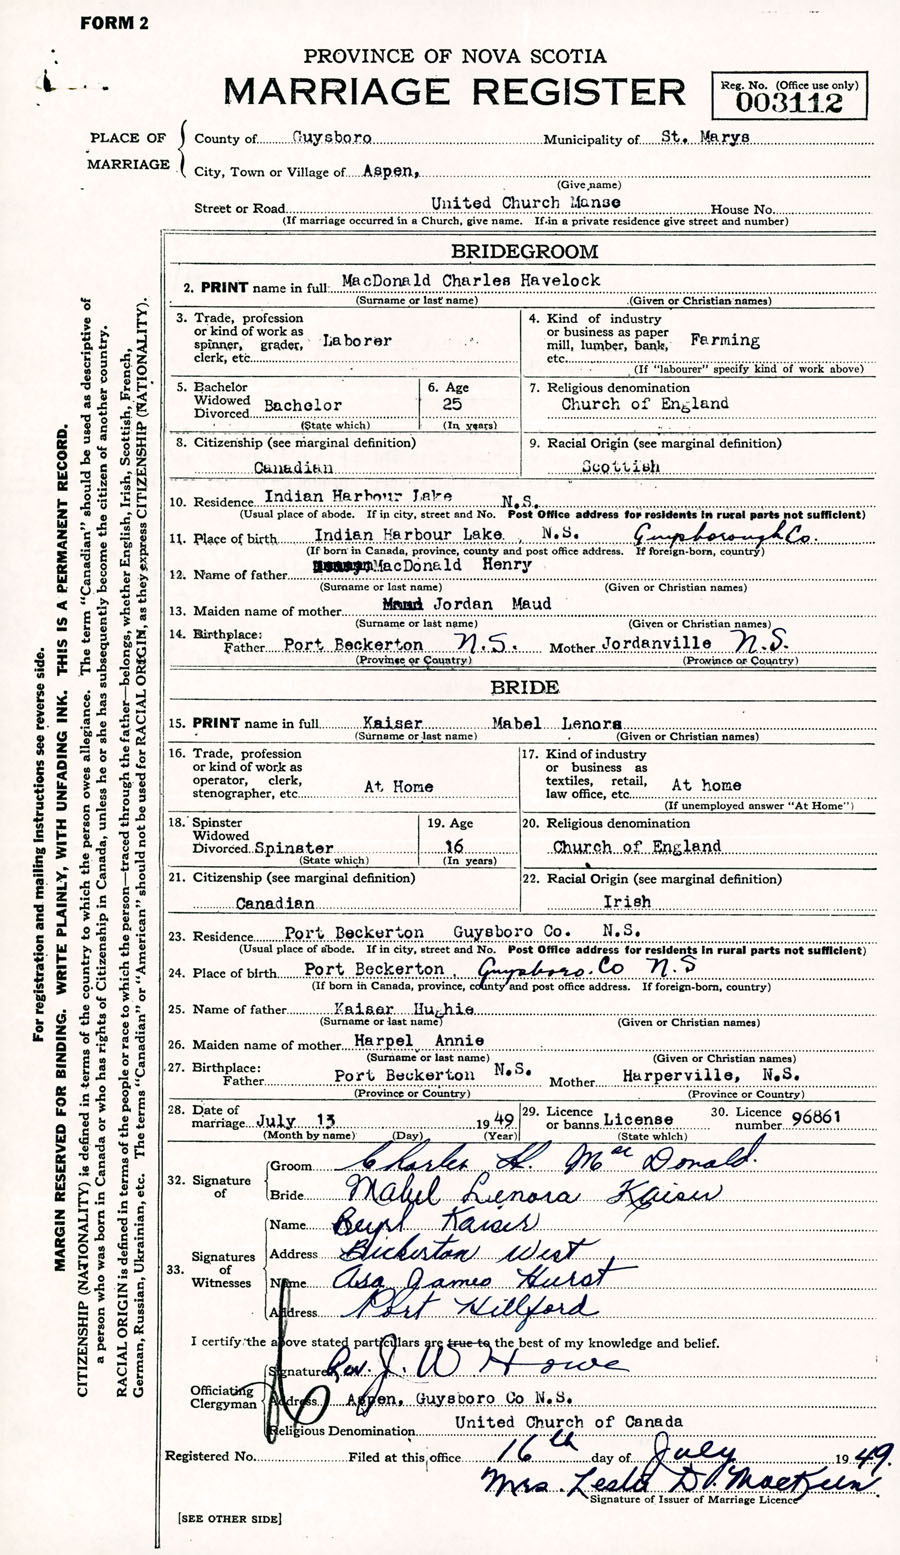 FORM 2
PROVINCE OF NOVA SCOTIA
MARRIAGE REGISTER
Reg. No. (Office use only)
003112
PLACE OF MARRIAGE
County of Guysboro Municipality of St. Marys
City, Town or Village of Aspen,
(Give name)
Street or Road United Church Manse House No.
(If marriage occurred in a Church, give name. If in a private residence give street and number)
For registration and mailing instructions see reverse side.
MARGIN RESERVED FOR BINDING. WRITE PLAINLY, WITH UNFADING INK. THIS IS A PERMANENT RECORD.
CITIZENSHIP (NATIONALITY) is defined in terms of the country to which the person owes allegiance. The term "Canadian" should be used as descriptive of
a person who was born in Canada or who has rights of Citizenship in Canada, unless he or she has subsequently become the citizen of another country.
RACIAL ORIGIN is defined in terms of the people or race to which the person—traced through the father—belongs, whether English, Irish, Scottish, French,
German, Russian, Ukrainian, etc. The terms "Canadian" or "American" should not be used for RACIAL ORIGIN, as they express CITIZENSHIP (NATIONALITY).
BRIDEGROOM
2. PRINT name in full: MacDonald Charles Havelock
(Surname or last name) (Given or Christian names)
3. Trade, profession
or kind of work as
spinner, grader,
clerk, etc. Laborer
4. Kind of industry
or business as paper
mill, lumber, bank,
etc. Farming
(If "labourer" specify kind of work above)
5. Bachelor
Widowed
Divorced Bachelor
(State which)
6. Age
25
(In years)
7. Religious denomination
Church of England
8. Citizenship (see marginal definition)
Canadian
9. Racial Origin (see marginal definition)
Scottish
10. Residence Indian Harbour Lake N.S.
(Usual place of abode. If in city, street and No. Post Office address for residents in rural parts not sufficient)
11. Place of birth Indian Harbour Lake, N.S. Guysborough Co.
(If born in Canada, province, county and post office address. If foreign-born, country)
12. Name of father MacDonald Henry
(Surname or last name) (Given or Christian names)
13. Maiden name of mother Maud Jordan Maud
(Surname or last name) (Given or Christian names)
14. Birthplace:
Father Port Beckerton N.S. Mother Jordanville N.S.
(Province or Country) (Province or Country)
BRIDE
15. PRINT name in full Kaiser Mabel Lenora
(Surname or last name) (Given or Christian names)
16. Trade, profession
or kind of work as
operator, clerk,
stenographer, etc. At Home
17. Kind of industry
or business as
textiles, retail,
law office, etc. At home
(If unemployed answer "At Home")
18. Spinster
Widowed
Divorced Spinster
(State which)
19. Age
16
(In years)
20. Religious denomination
Church of England
21. Citizenship (see marginal definition)
Canadian
22. Racial Origin (see marginal definition)
Irish
23. Residence Port Beckerton Guysboro Co. N.S.
(Usual place of abode. If in city, street and No. Post Office address for residents in rural parts not sufficient)
24. Place of birth Port Beckerton, Guysboro. Co N.S
(If born in Canada, province, county and post office address. If foreign-born, country)
25. Name of father Kaiser Hughie
(Surname or last name) (Given or Christian names)
26. Maiden name of mother Harpel Annie
(Surname or last name) (Given or Christian names)
27. Birthplace:
Father Port Beckerton N.S. Mother Harperville, N.S.
(Province or Country) (Province or Country)
28. Date of
marriage July 13 1949
(Month by name) (Day) (Year)
29. Licence
or banns License
(State which)
30. Licence
number 96861
32. Signature of
Groom Charles H. MacDonald.
Bride Mabel Lenora Kaiser
33. Signatures of Witnesses
Name Beryl Kaiser
Address Bickerton West
Name Asa James Hurst
Address Port Hillford
I certify the above stated particulars are true to the best of my knowledge and belief.
Officiating Clergyman
Signature Rev. J. W Howe
Address Aspen, Guysboro Co N.S.
Religious Denomination United Church of Canada
Registered No. Filed at this office 16th day of July 1949.
Mrs. Leslie D. MacKeen
Signature of Issuer of Marriage Licence
[SEE OTHER SIDE]